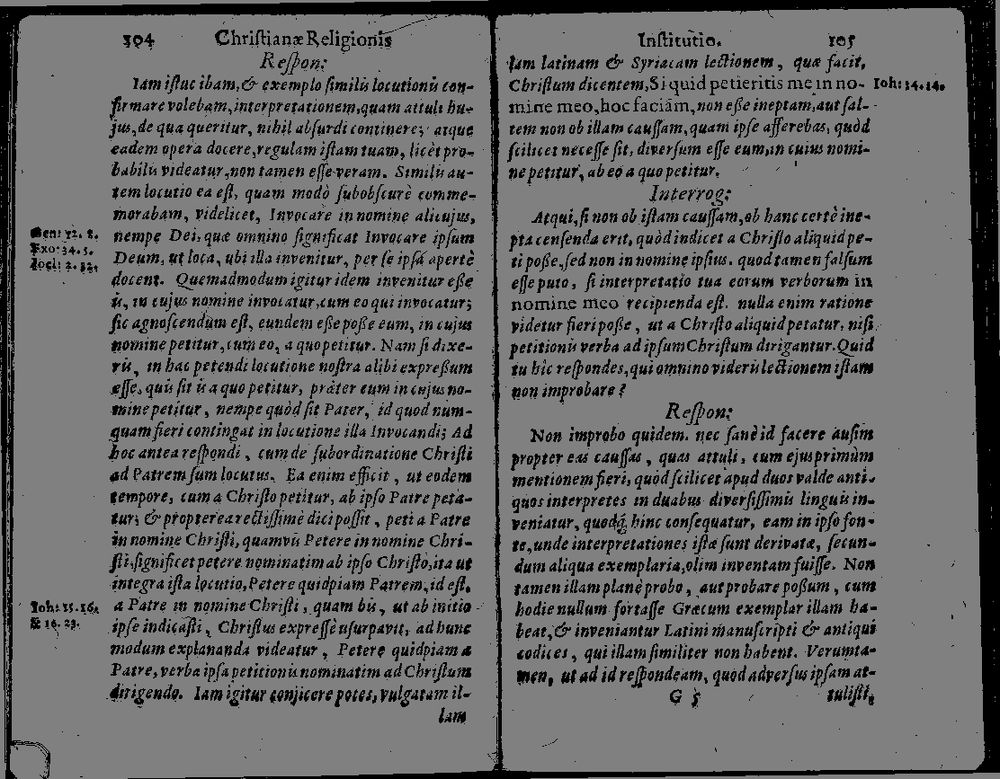 304 Christianæ Religionis
Respon:
Iam istuc ibam, & exemplo similis locutionis con-
firmare volebam, interpretationem, quam attuli hu-
jus, de qua queritur, nihil absurdi continere; atque
eadem opera docere, regulam istam tuam, licèt pro-
babilis videatur, non tamen esse veram. Similis au-
tem locutio ea est, quam modò subobscurè comme-
morabam, videlicet, Invocare in nomine alicujus,
Gen: 12. 8. nempe Dei, quæ omnino significat Invocare ipsum
Exo: 34. 5. Deum, ut loca, ubi illa invenitur, per se ipsa apertè
Ioel: 2. 32. docent. Quemadmodum igitur idem invenitur eße
is, in cujus nomine invocatur, cum eo qui invocatur;
sic agnoscendum est, eundem eße poße eum, in cujus
nomine petitur, cum eo, a quo petitur. Nam si dixe-
ris, in hac petendi locutione nostra alibi expreßum
esse, quis sit is a quo petitur, præter eum in cujus no-
mine petitur, nempe quòd sit Pater, id quod num-
quam fieri contingat in locutione illa Invocandi; Ad
hoc antea respondi, cum de subordinatione Christi
ad Patrem sum locutus. Ea enim efficit, ut eodem
tempore, cum a Christo petitur, ab ipso Patre peta-
tur; & propterea rectissimè dici possit, peti a Patre
in nomine Christi, quamvis Petere in nomine Chri-
sti, significet petere nominatim ab ipso Christo, ita ut
integra ista locutio, Petere quidpiam Patrem, id est,
Ioh: 15. 16. a Patre in nomine Christi, quam bis, ut ab initio
& 16. 23. ipse indicasti, Christus expressè usurpavit, ad hunc
modum explananda videatur, Petere quidpiam a
Patre, verba ipsa petitionis nominatim ad Christum
dirigendo. Iam igitur conjicere potes, vulgatam il-
lam
Institutio. 105
lam latinam & Syriacam lectionem, quæ facit,
Christum dicentem, Si quid petieritis me in no- Ioh: 14. 14.
mine meo, hoc faciam, non eße ineptam, aut sal-
tem non ob illam caussam, quam ipse afferebas, quòd
scilicet necesse sit, diversum esse eum, in cuius nomi-
ne petitur, ab eo a quo petitur.
Interrog:
Atqui, si non ob istam caussam, ob hanc certè ine-
pta censenda erit, quòd indicet a Christo aliquid pe-
ti poße, sed non in nomine ipsius. quod tamen falsum
esse puto, si interpretatio tua eorum verborum in
nomine meo recipienda est. nulla enim ratione
videtur fieri poße, ut a Christo aliquid petatur, nisi
petitionis verba ad ipsum Christum dirigantur. Quid
tu hîc respondes, qui omnino videris lectionem istam
non improbare?
Respon:
Non improbo quidem. nec sanè id facere ausim
propter eas caussas, quas attuli, cum ejus primùm
mentionem fieri, quòd scilicet apud duos valde anti-
quos interpretes in duabus diversissimis linguis in-
veniatur, quodq́ hinc consequatur, eam in ipso fon-
te, unde interpretationes istæ sunt derivatæ, secun-
dum aliqua exemplaria, olim inventam fuisse. Non
tamen illam planè probo, aut probare poßum, cum
hodie nullum fortasse Græcum exemplar illam ha-
beat, & inveniantur Latini manuscripti & antiqui
codices, qui illam similiter non habent. Verumta-
men, ut ad id respondeam, quod adversus ipsam at-
G 5 tulisti,